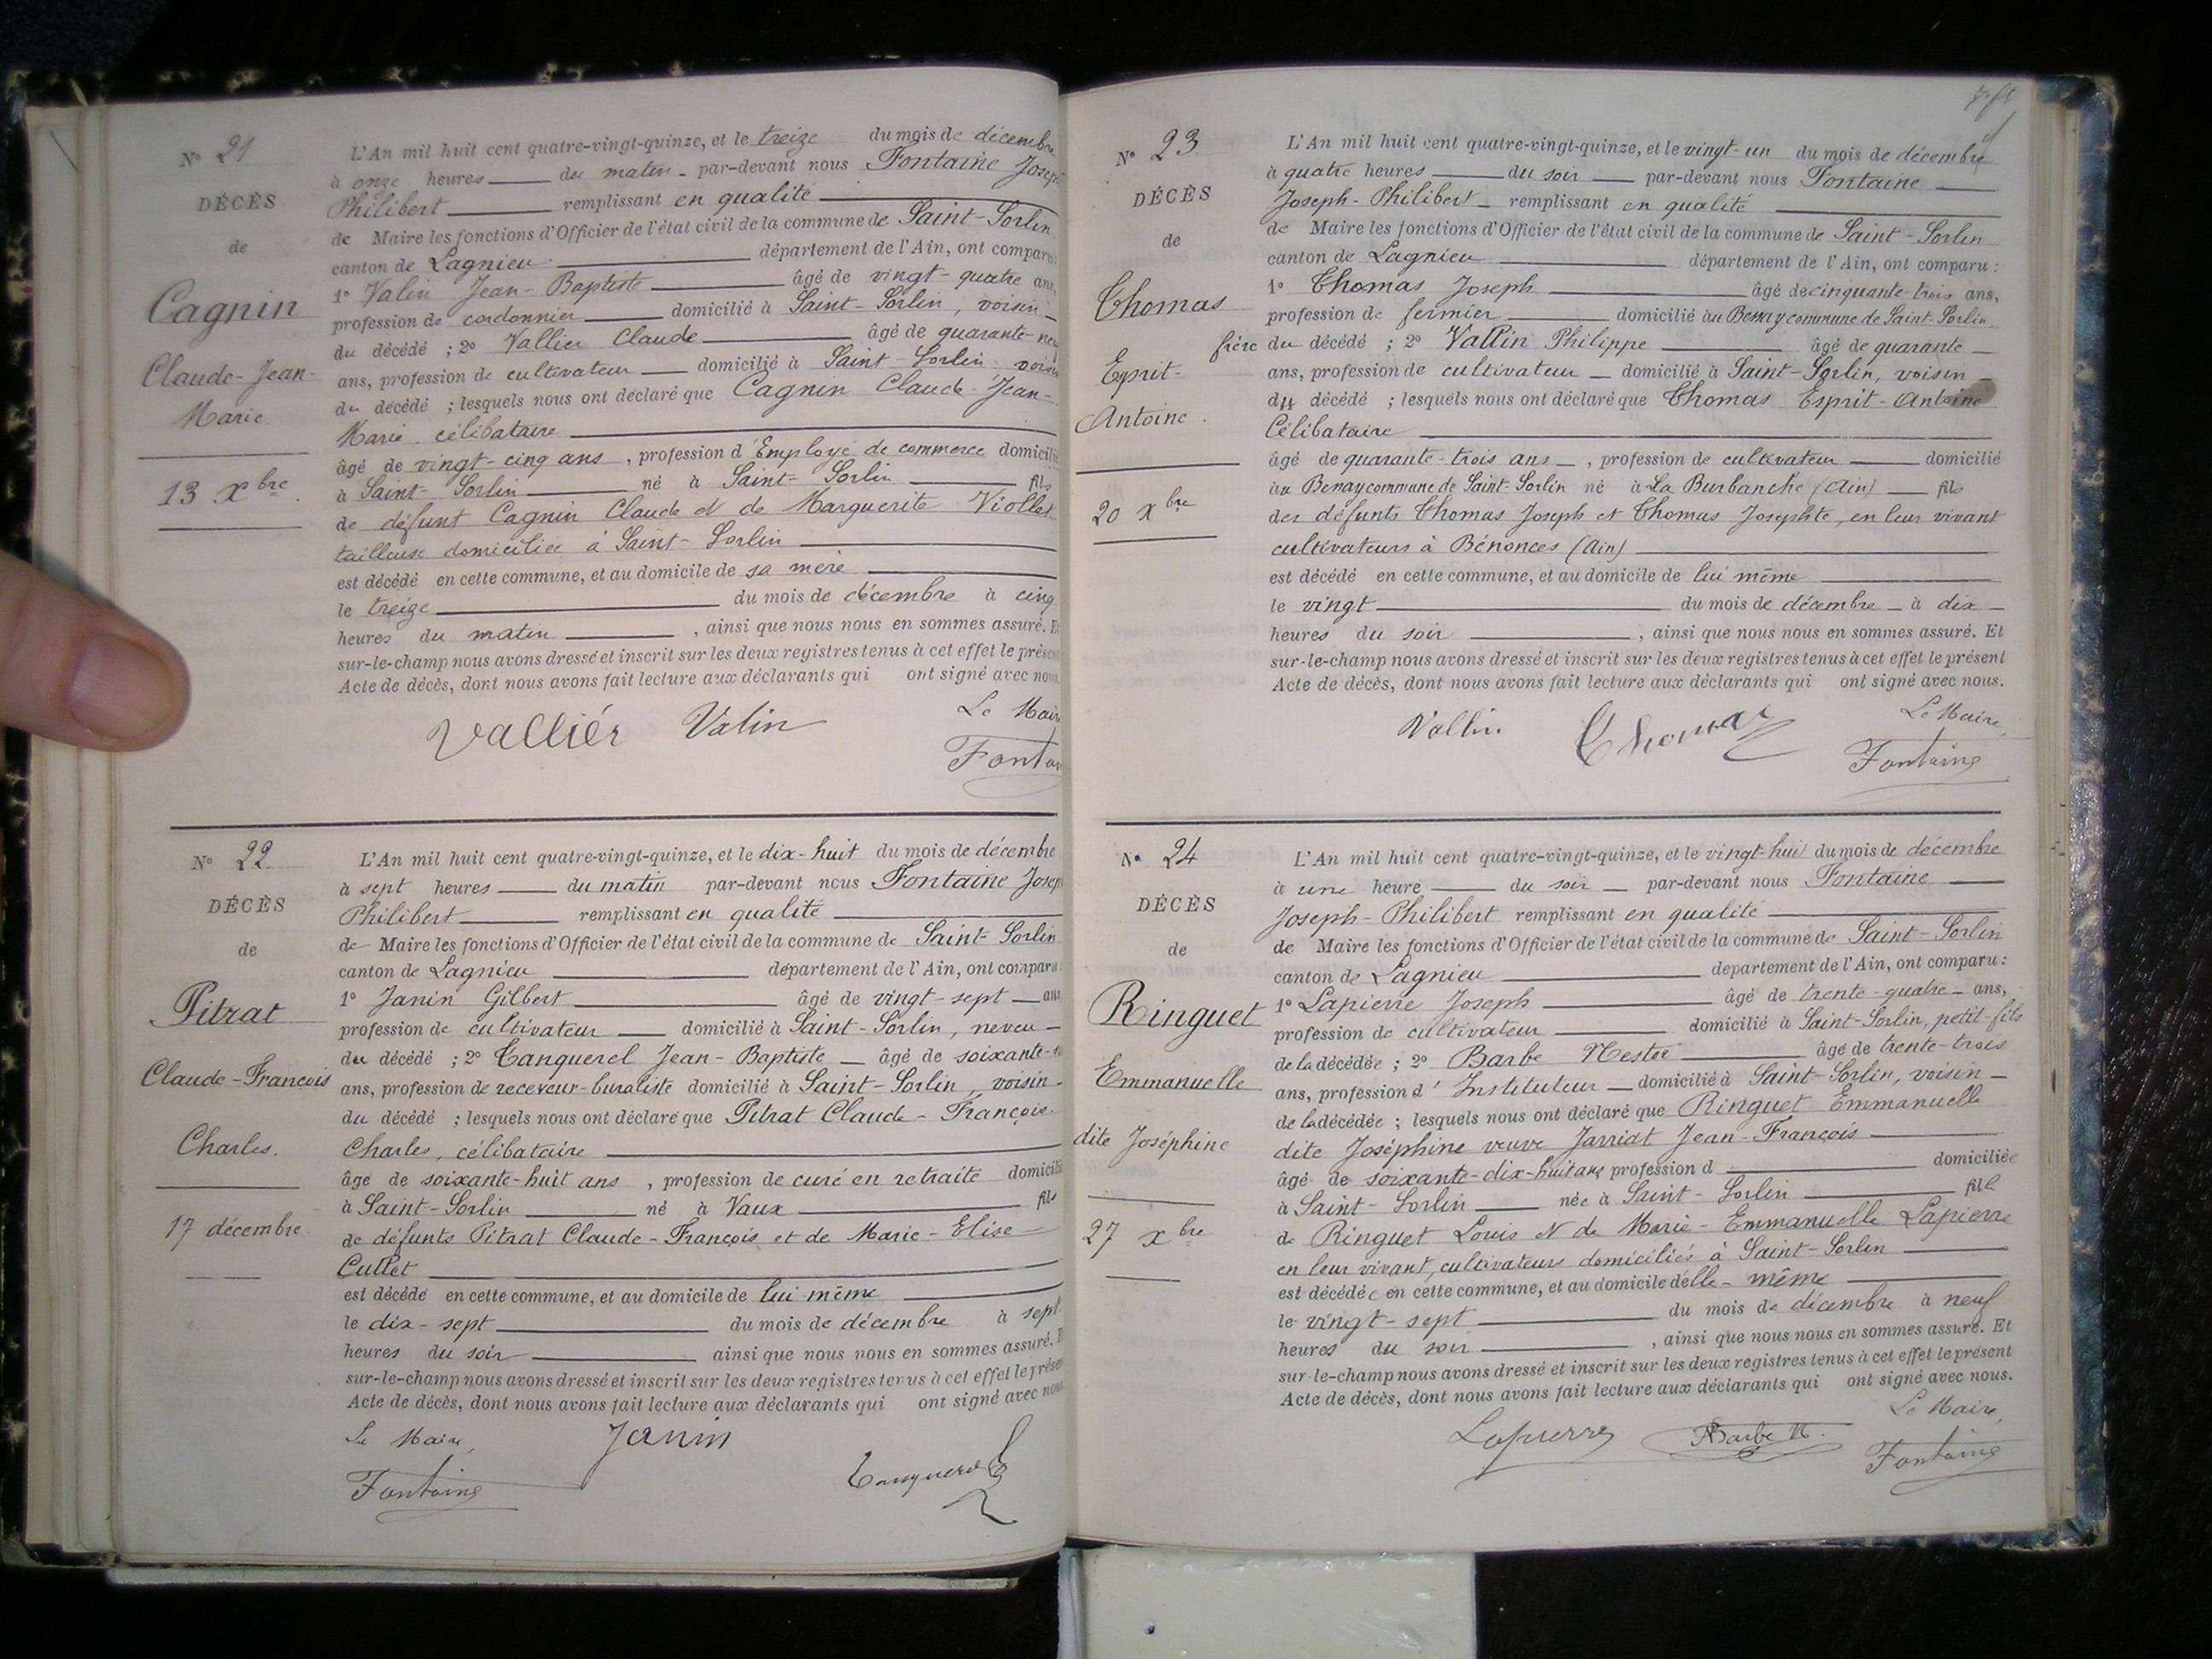 N° 21
DÉCÈS
de
Cagnin
Claude-Jean-
Marie.
13 Xbre.
L'An mil huit cent quatre-vingt-quinze, et le treize du mois de décembre
à onze heures du matin - par-devant nous Fontaine Joseph
Philibert remplissant en qualité
de Maire les fonctions d'Officier de l'état civil de la commune de Saint-Sorlin
canton de Lagnieu département de l'Ain, ont comparu:
1° Valin Jean-Baptiste âgé de vingt-quatre ans,
profession de cordonnier domicilié à Saint-Sorlin, voisin
du décédé ; 2° Vallier Claude âgé de quarante-neuf
ans, profession de cultivateur domicilié à Saint-Sorlin voisin
du décédé ; lesquels nous ont déclaré que Cagnin Claude-Jean-
Marie, célibataire
âgé de vingt-cinq ans, profession d'Employé de commerce domicilié
à Saint-Sorlin né à Saint-Sorlin fils
de défunt Cagnin Claude et de Marguerite Viollet
tailleuse domiciliée à Saint-Sorlin
est décédé en cette commune, et au domicile de sa mère
le treize du mois de décembre à cinq
heures du matin, ainsi que nous nous en sommes assuré. Et
sur-le-champ nous avons dressé et inscrit sur les deux registres tenus à cet effet le présent
Acte de décès, dont nous avons fait lecture aux déclarants qui ont signé avec nous.
Valliér Valin Le Maire
Fontaine
N° 22
DÉCÈS
de
Pitrat
Claude-François
Charles.
17 décembre
L'An mil huit cent quatre-vingt-quinze, et le dix-huit du mois de décembre
à sept heures du matin par-devant nous Fontaine Joseph
Philibert remplissant en qualité
de Maire les fonctions d'Officier de l'état civil de la commune de Saint-Sorlin
canton de Lagnieu département de l'Ain, ont comparu:
1° Janin Gilbert âgé de vingt-sept ans
profession de cultivateur domicilié à Saint-Sorlin, neveu -
du décédé ; 2° Tanquerel Jean-Baptiste âgé de soixante-
ans, profession de receveur-buraliste domicilié à Saint-Sorlin, voisin -
du décédé ; lesquels nous ont déclaré que Pitrat Claude-François-
Charles, célibataire
âgé de soixante-huit ans, profession de curé en retraite domicilié
à Saint-Sorlin né à Vaux fils
de défunts Pitrat Claude-François et de Marie-Elise
Cullet
est décédé en cette commune, et au domicile de lui même
le dix-sept du mois de décembre à sept
heures du soir ainsi que nous nous en sommes assuré. Et
sur-le-champ nous avons dressé et inscrit sur les deux registres tenus à cet effet le présent
Acte de décès, dont nous avons fait lecture aux déclarants qui ont signé avec nous
Le Maire, Janin
Fontaine Tanquerel
N° 23
DÉCÈS
de
Thomas
Esprit-
Antoine.
20 Xbre
L'An mil huit cent quatre-vingt-quinze, et le vingt-un du mois de décembre
à quatre heures du soir par-devant nous Fontaine
Joseph-Philibert remplissant en qualité
de Maire les fonctions d'Officier de l'état civil de la commune de Saint-Sorlin
canton de Lagnieu département de l'Ain, ont comparu :
1° Thomas Joseph âgé de cinquante-trois ans,
profession de fermier domicilié au Bessay commune de Saint-Sorlin
frère du décédé ; 2° Vallin Philippe âgé de quarante
ans, profession de cultivateur domicilié à Saint-Sorlin, voisin -
du décédé ; lesquels nous ont déclaré que Thomas Esprit-Antoine
Célibataire
âgé de quarante-trois ans, profession de cultivateur domicilié
au Bessay commune de Saint-Sorlin né à La Burbanche (Ain) fils
des défunts Thomas Joseph et Thomas Josephte, en leur vivant
cultivateurs à Bénonces (Ain)
est décédé en cette commune, et au domicile de lui même
le vingt du mois de décembre à dix
heures du soir, ainsi que nous nous en sommes assuré. Et
sur-le-champ nous avons dressé et inscrit sur les deux registres tenus à cet effet le présent
Acte de décès, dont nous avons fait lecture aux déclarants qui ont signé avec nous.
Vallin Thomas Le Maire,
Fontaine
N° 24
DÉCÈS
de
Ringuet
Emmanuelle
dite Joséphine
27 Xbre
L'An mil huit cent quatre-vingt-quinze, et le vingt-huit du mois de décembre
à une heure du soir par-devant nous Fontaine
Joseph-Philibert remplissant en qualité
de Maire les fonctions d'Officier de l'état civil de la commune de Saint-Sorlin
canton de Lagnieu département de l'Ain, ont comparu :
1° Lapierre Joseph âgé de trente-quatre ans,
profession de cultivateur domicilié à Saint-Sorlin, petit-fils
de la décédée ; 2° Barbe Nestor âgé de trente-trois
ans, profession d'Instituteur domicilié à Saint-Sorlin, voisin
de la décédée ; lesquels nous ont déclaré que Ringuet Emmanuelle
dite Joséphine veuve Jarriat Jean-François
âgé de soixante-dix-huit ans profession d domiciliée
à Saint-Sorlin née à Saint-Sorlin fille
de Ringuet Louis et de Marie-Emmanuelle Lapierre
en leur vivant, cultivateurs domiciliés à Saint-Sorlin
est décédée en cette commune, et au domicile d'elle-même
le vingt-sept du mois de décembre à neuf
heures du soir, ainsi que nous nous en sommes assuré. Et
sur-le-champ nous avons dressé et inscrit sur les deux registres tenus à cet effet le présent
Acte de décès, dont nous avons fait lecture aux déclarants qui ont signé avec nous.
Lapierre Barbe N. Le Maire,
Fontaine